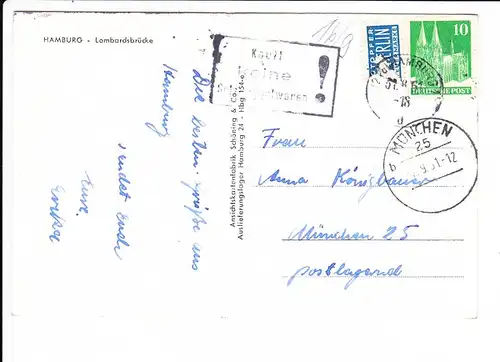 HAMBURG - Lombardsbrücke
Die besten Grüße aus
Hamburg
sendet Euch
Eure
Ansichtskartenfabrik Schöning & Co.,
Auslieferungslager Hamburg 24 - Hbg 154
Kauft
keine
!
NOTOPFER
BERLIN
STEUERMARKE
10
DEUTSCHE POST
HAMBURG
MÜNCHEN
25
b
9.51-12
Frau
Anna Königbauer
München 25
postlagernd